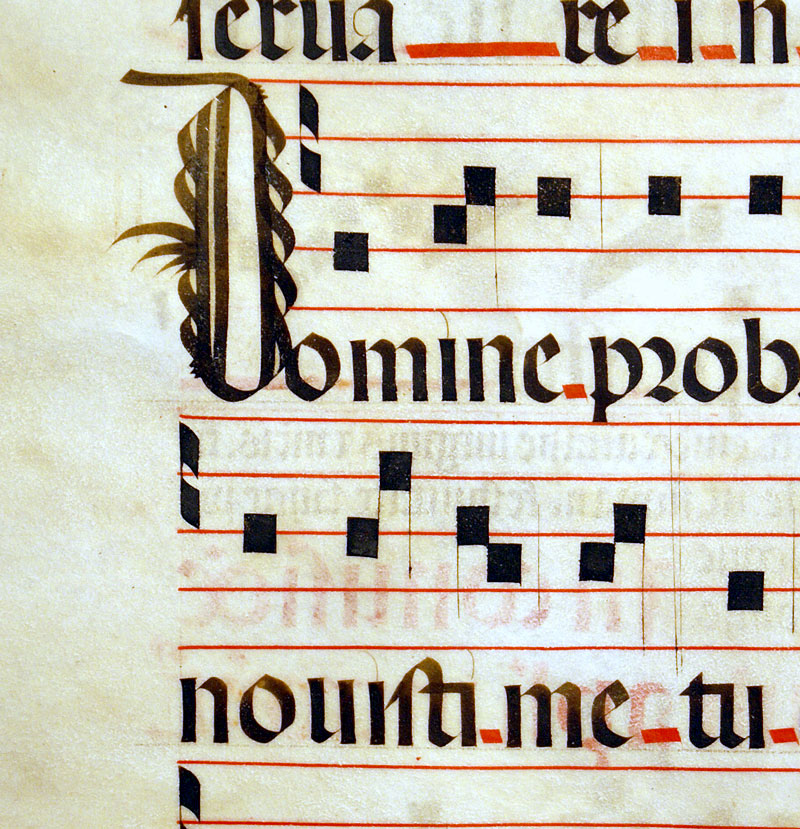 ſerua re in
Domine prob
nouiſti me tu